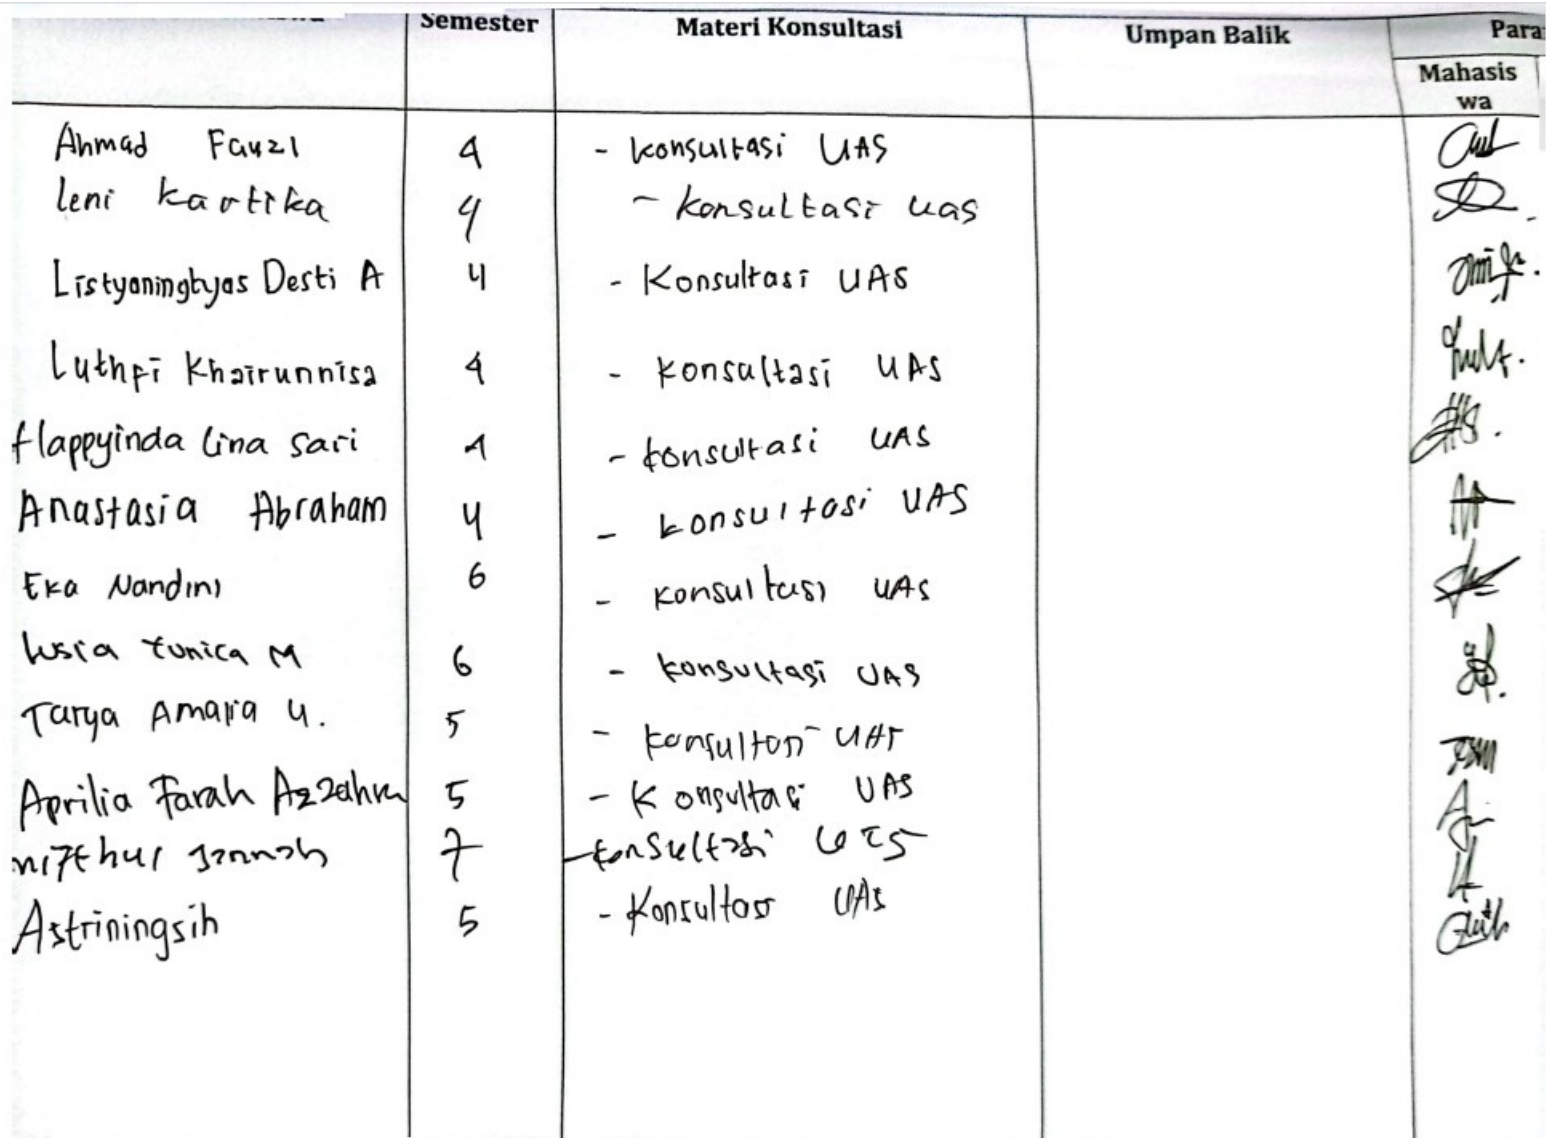 Semester Materi Konsultasi Umpan Balik Para
Mahasis
wa
Ahmad Fauzi 4 - konsultasi UAS
leni kartika 4 - konsultasi uas
Listyaningtyas Desti A 4 - Konsultasi UAS
Luthfi Khairunnisa 4 - konsultasi UAS
Happyinda Lina Sari 4 - konsultasi UAS
Anastasia Abraham 4 - konsultasi UAS
Eka Nandini 6 - konsultasi UAS
lusia M 6 - konsultasi UAS
Tasya Amalia U. 5 - UAS
Aprilia Farah Azzahra 5 - Konsultasi UAS
Jannah 7 - konsultasi
Astriningsih 5 - Konsultasi UAS